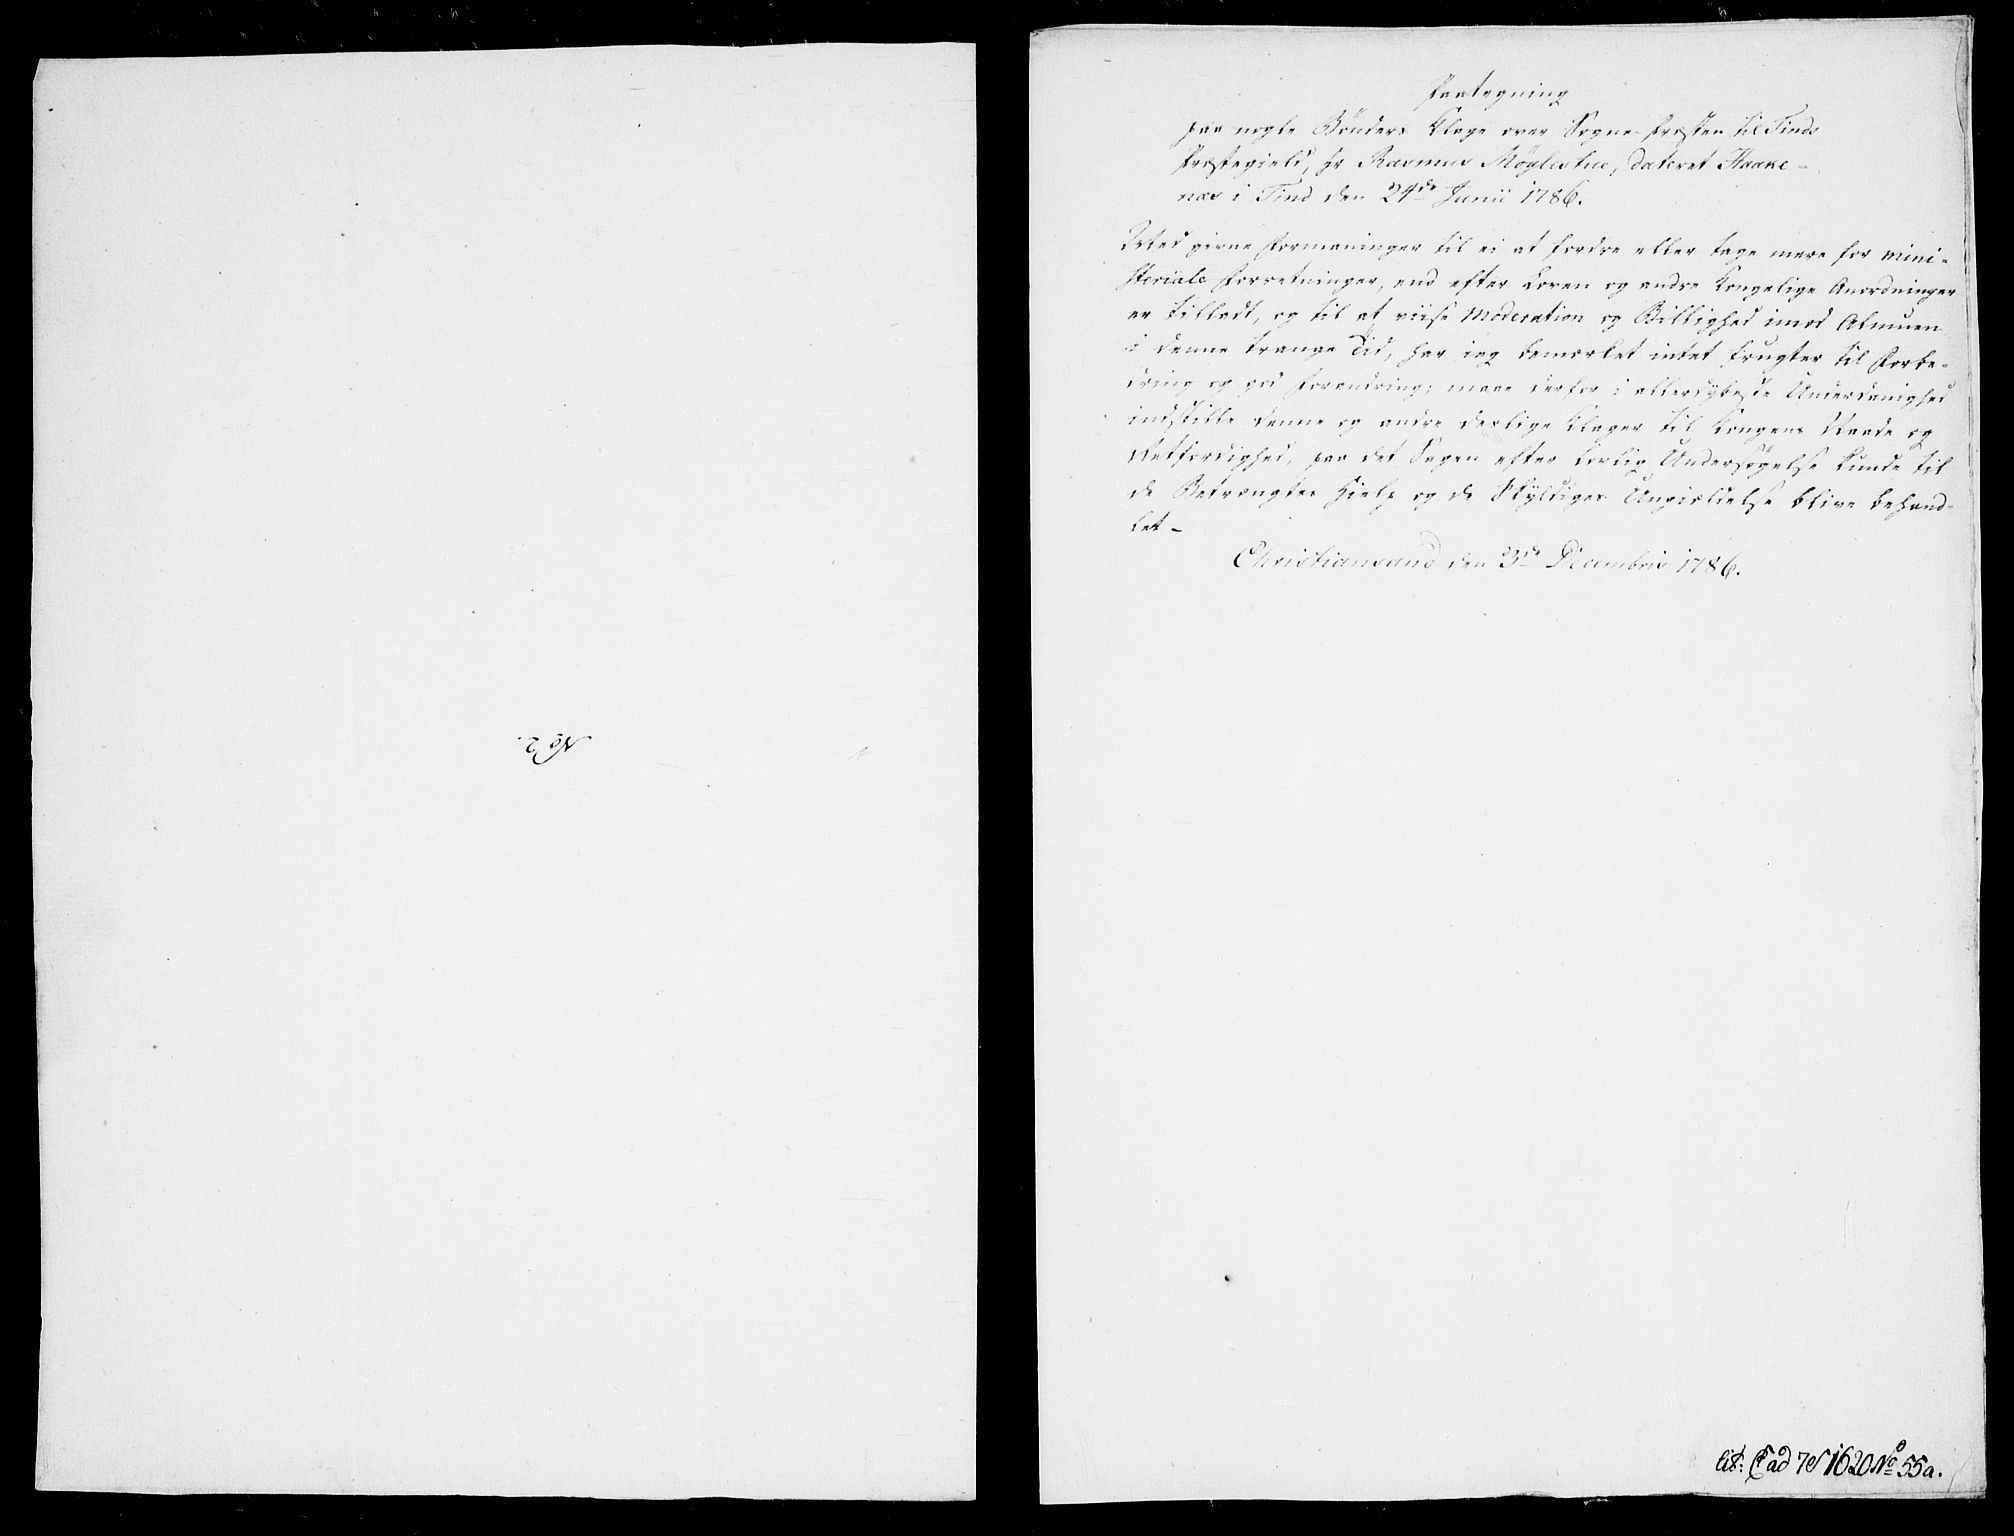 No 2.
Paategning
paa nogle Bönders Klage over Sogne-Præsten til Tinds
Præstegield, Hr Rasmus Möglestue, dateret Haake-
næs i Tind den 24de Junii 1786.
Ved givne Formaninger til ei at fordre eller tage mere for mini-
steriale Forretninger, end efter Loven og andre Kongelige Anordninger
er tilladt, og til at viise Moderation og Billighed imod Almuen
i denne trange Tid, har ieg bemerket intet Frugter til Forbe-
dring og god Forandring; maae derfor i allerdybeste Underdanighed
indstille denne og andre deslige Klager til Kongens Naade og
Retfærdighed, paa det Sagen efter lovlig Undersögelse kunde til
de Betrængtes Hielp og de Skyldiges Undgieldelse blive behand-
let -
Christiansand den 3de Decembris 1786.
lit: C ad 7 1620 No 55 a.